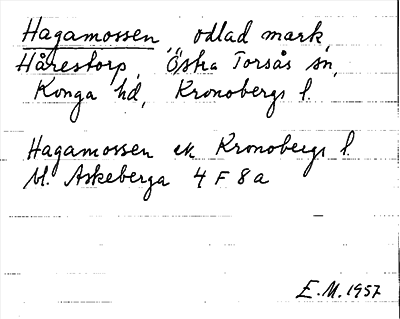 Hagamossen, odlad mark,
Hårestorp, Östra Torsås sn,
Konga hd, Kronobergs l.
Hagamossen ek Kronobergs l.
bl. Askeberga 4 F 8 a
E.M. 1957